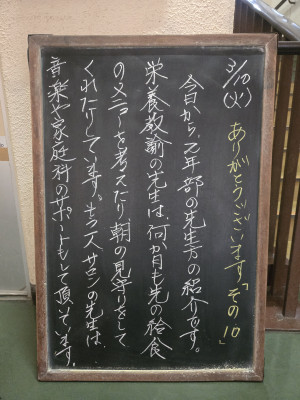 3/10(火)
ありがとうございます「その10」
今日から、2年部の先生方の紹介です。
栄養教諭の先生は、何か月も先の給食
のメニューを考えたり、朝の見守りをして
くれたりしています。キラスサロンの先生は、
音楽や家庭科のサポートもして頂いています。